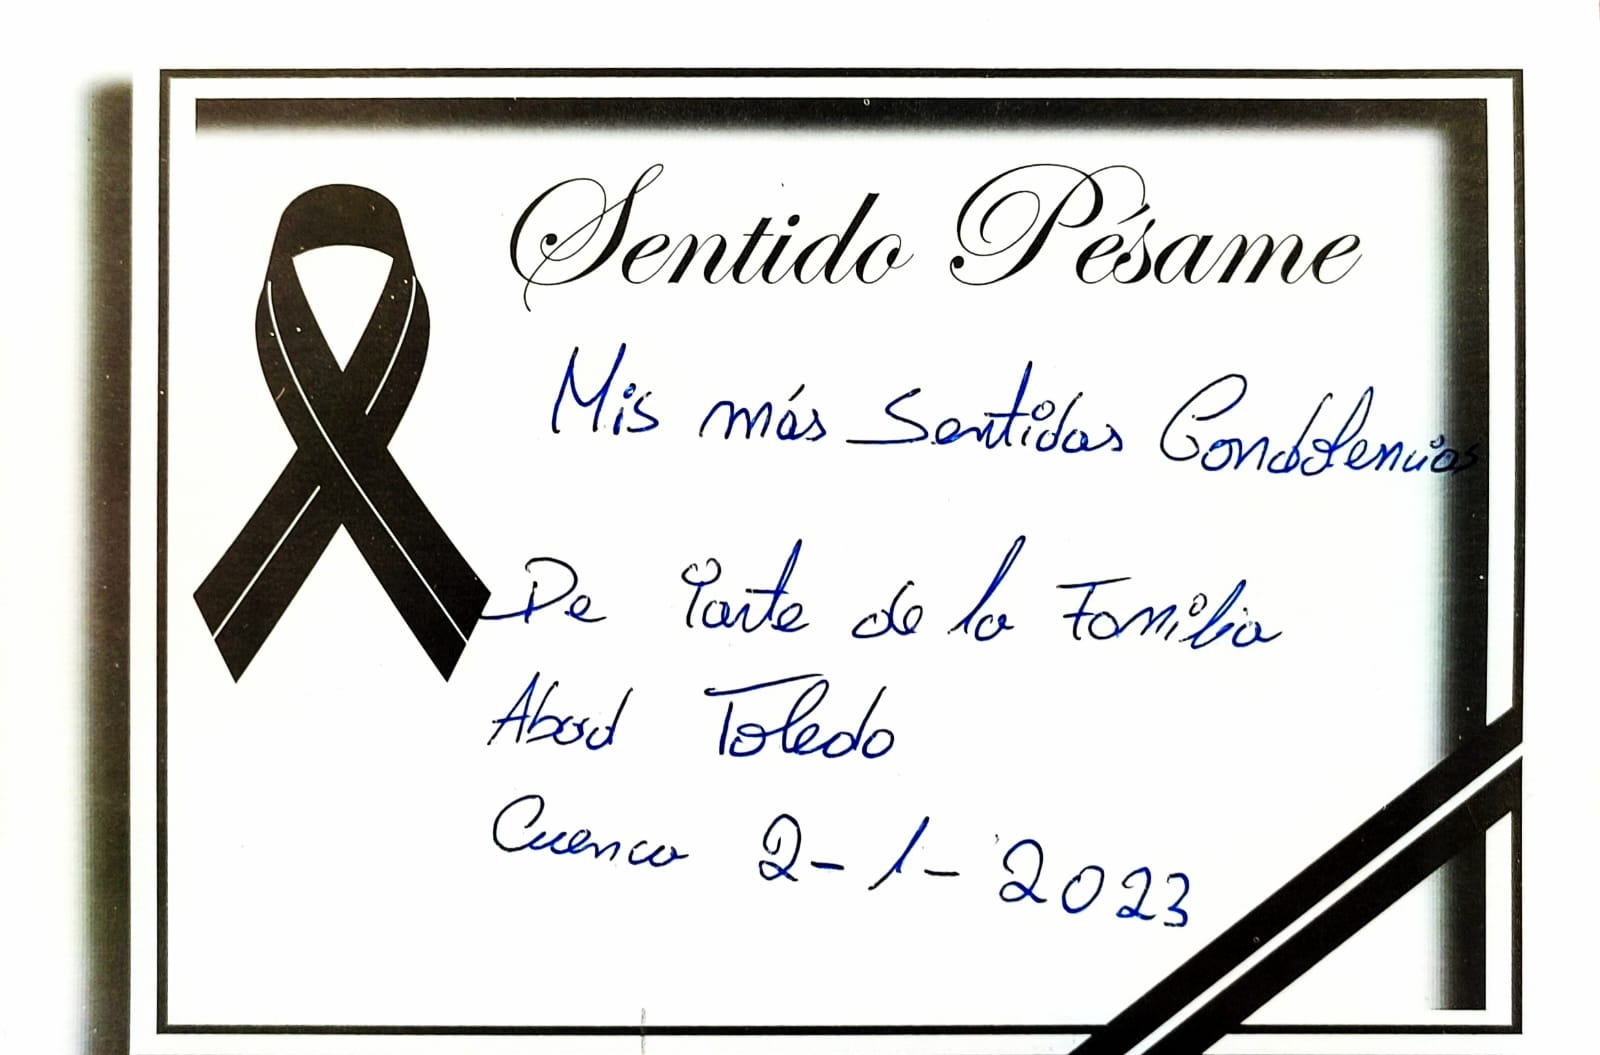 Sentido Pésame
Mis más Sentidas Condolencias
De Parte de la Familia
Abad Toledo
Cuenca 2-1-2023